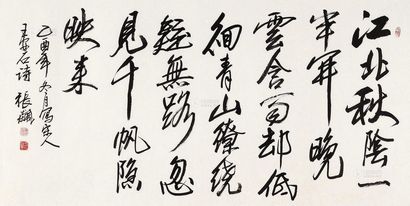 江北秋陰一
半開晚
雲含雨却低
徊青山繚繞
疑無路忽
見千帆隐
映来
乙酉年冬月写宋人
王安石詩 張